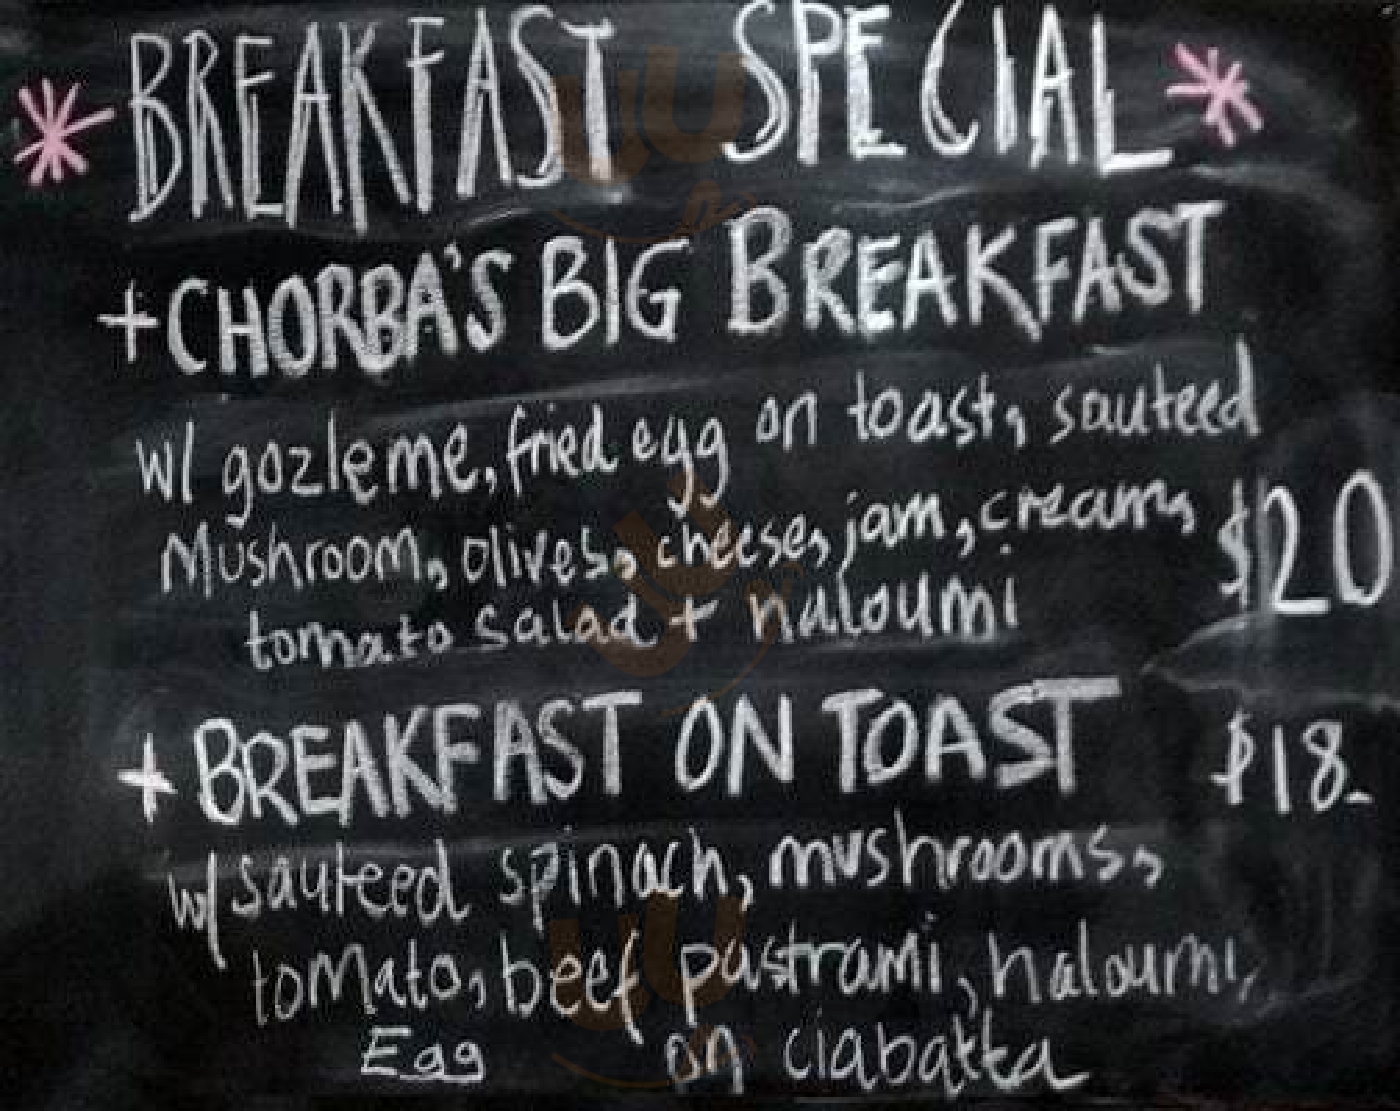 * BREAKFAST SPECIAL *
+ CHORBA'S BIG BREAKFAST
w/ gozleme, fried egg on toast, sauteed
Mushroom, olives, cheese, jam, cream, $20
tomato salad + haloumi
+ BREAKFAST ON TOAST $18.
w/ sauteed spinach, mushrooms,
tomato, beef pastrami, haloumi,
Egg on ciabatta